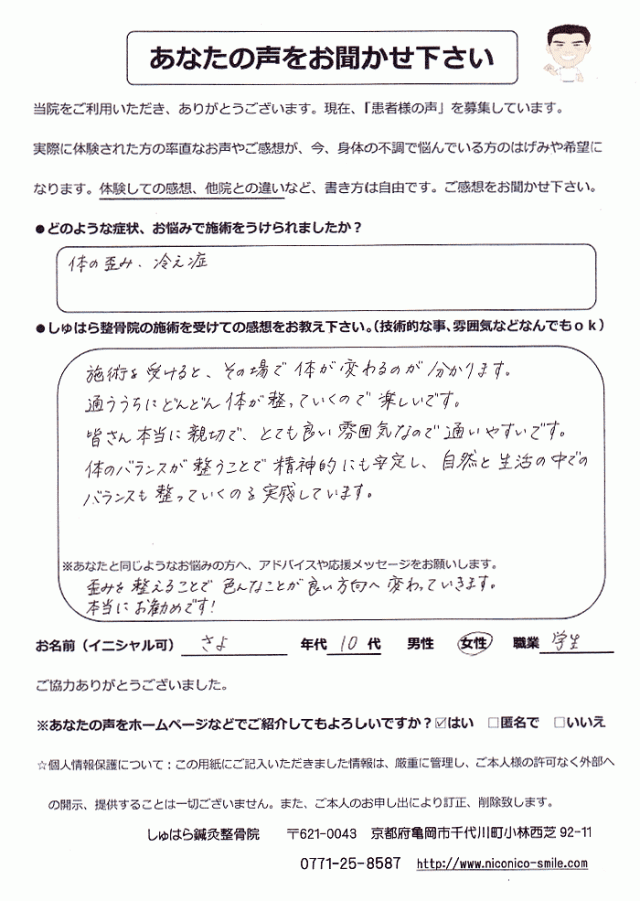 あなたの声をお聞かせ下さい
当院をご利用いただき、ありがとうございます。現在、「患者様の声」を募集しています。
実際に体験された方の率直なお声やご感想が、今、身体の不調で悩んでいる方のはげみや希望に
なります。体験しての感想、他院との違いなど、書き方は自由です。ご感想をお聞かせ下さい。
●どのような症状、お悩みで施術をうけられましたか？
体の歪み、冷え症
●しゅはら整骨院の施術を受けての感想をお教え下さい。（技術的な事、雰囲気などなんでもｏｋ）
施術を受けると、その場で体が変わるのが分かります。
通ううちにどんどん体が整っていくので楽しいです。
皆さん本当に親切で、とても良い雰囲気なので通いやすいです。
体のバランスが整うことで精神的にも安定し、自然と生活の中での
バランスも整っていくのを実感しています。
※あなたと同じようなお悩みの方へ、アドバイスや応援メッセージをお願いします。
歪みを整えることで色んなことが良い方向へ変わっていきます。
本当にお勧めです!
お名前（イニシャル可） さよ 年代 10 代 男性 女性 職業 学生
ご協力ありがとうございました。
※あなたの声をホームページなどでご紹介してもよろしいですか？☑はい □匿名で □いいえ
☆個人情報保護について：この用紙にご記入いただきました情報は、厳重に管理し、ご本人様の許可なく外部へ
の開示、提供することは一切ございません。また、ご本人のお申し出により訂正、削除致します。
しゅはら鍼灸整骨院 〒621-0043 京都府亀岡市千代川町小林西芝 92-11
0771-25-8587 http://www.niconico-smile.com